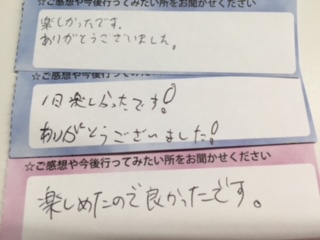 ☆ご感想や今後行ってみたい所をお聞かせください
楽しかったです。
ありがとうございました。
☆ご感想や今後行ってみたい所をお聞かせください
1日楽しかったです!
ありがとうございました!
☆ご感想や今後行ってみたい所をお聞かせください
楽しめたので良かったです。